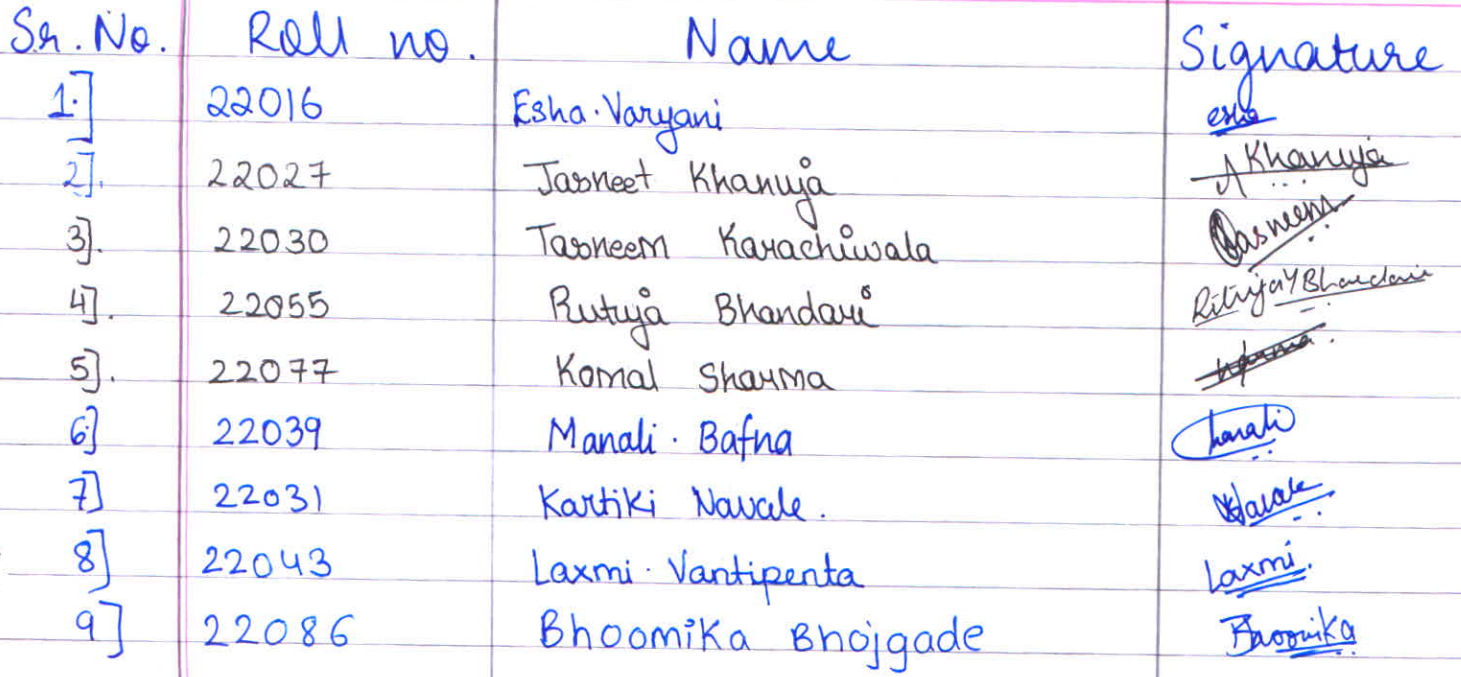 Sr. No. Roll no. Name Signature
1.] 22016 Esha. Varyani esha
2]. 22027 Jasneet Khanuja Khanuja
3]. 22030 Tasneem Karachiwala Tasneem
4]. 22055 Rutuja Bhandari Rutuja Y Bhandari
5]. 22077 Komal Sharma
6] 22039 Manali. Bafna Manali
7] 22031 Kartiki Navale. Navale
8] 22043 Laxmi. Vantipenta Laxmi.
9] 22086 Bhoomika Bhojgade Bhoomika